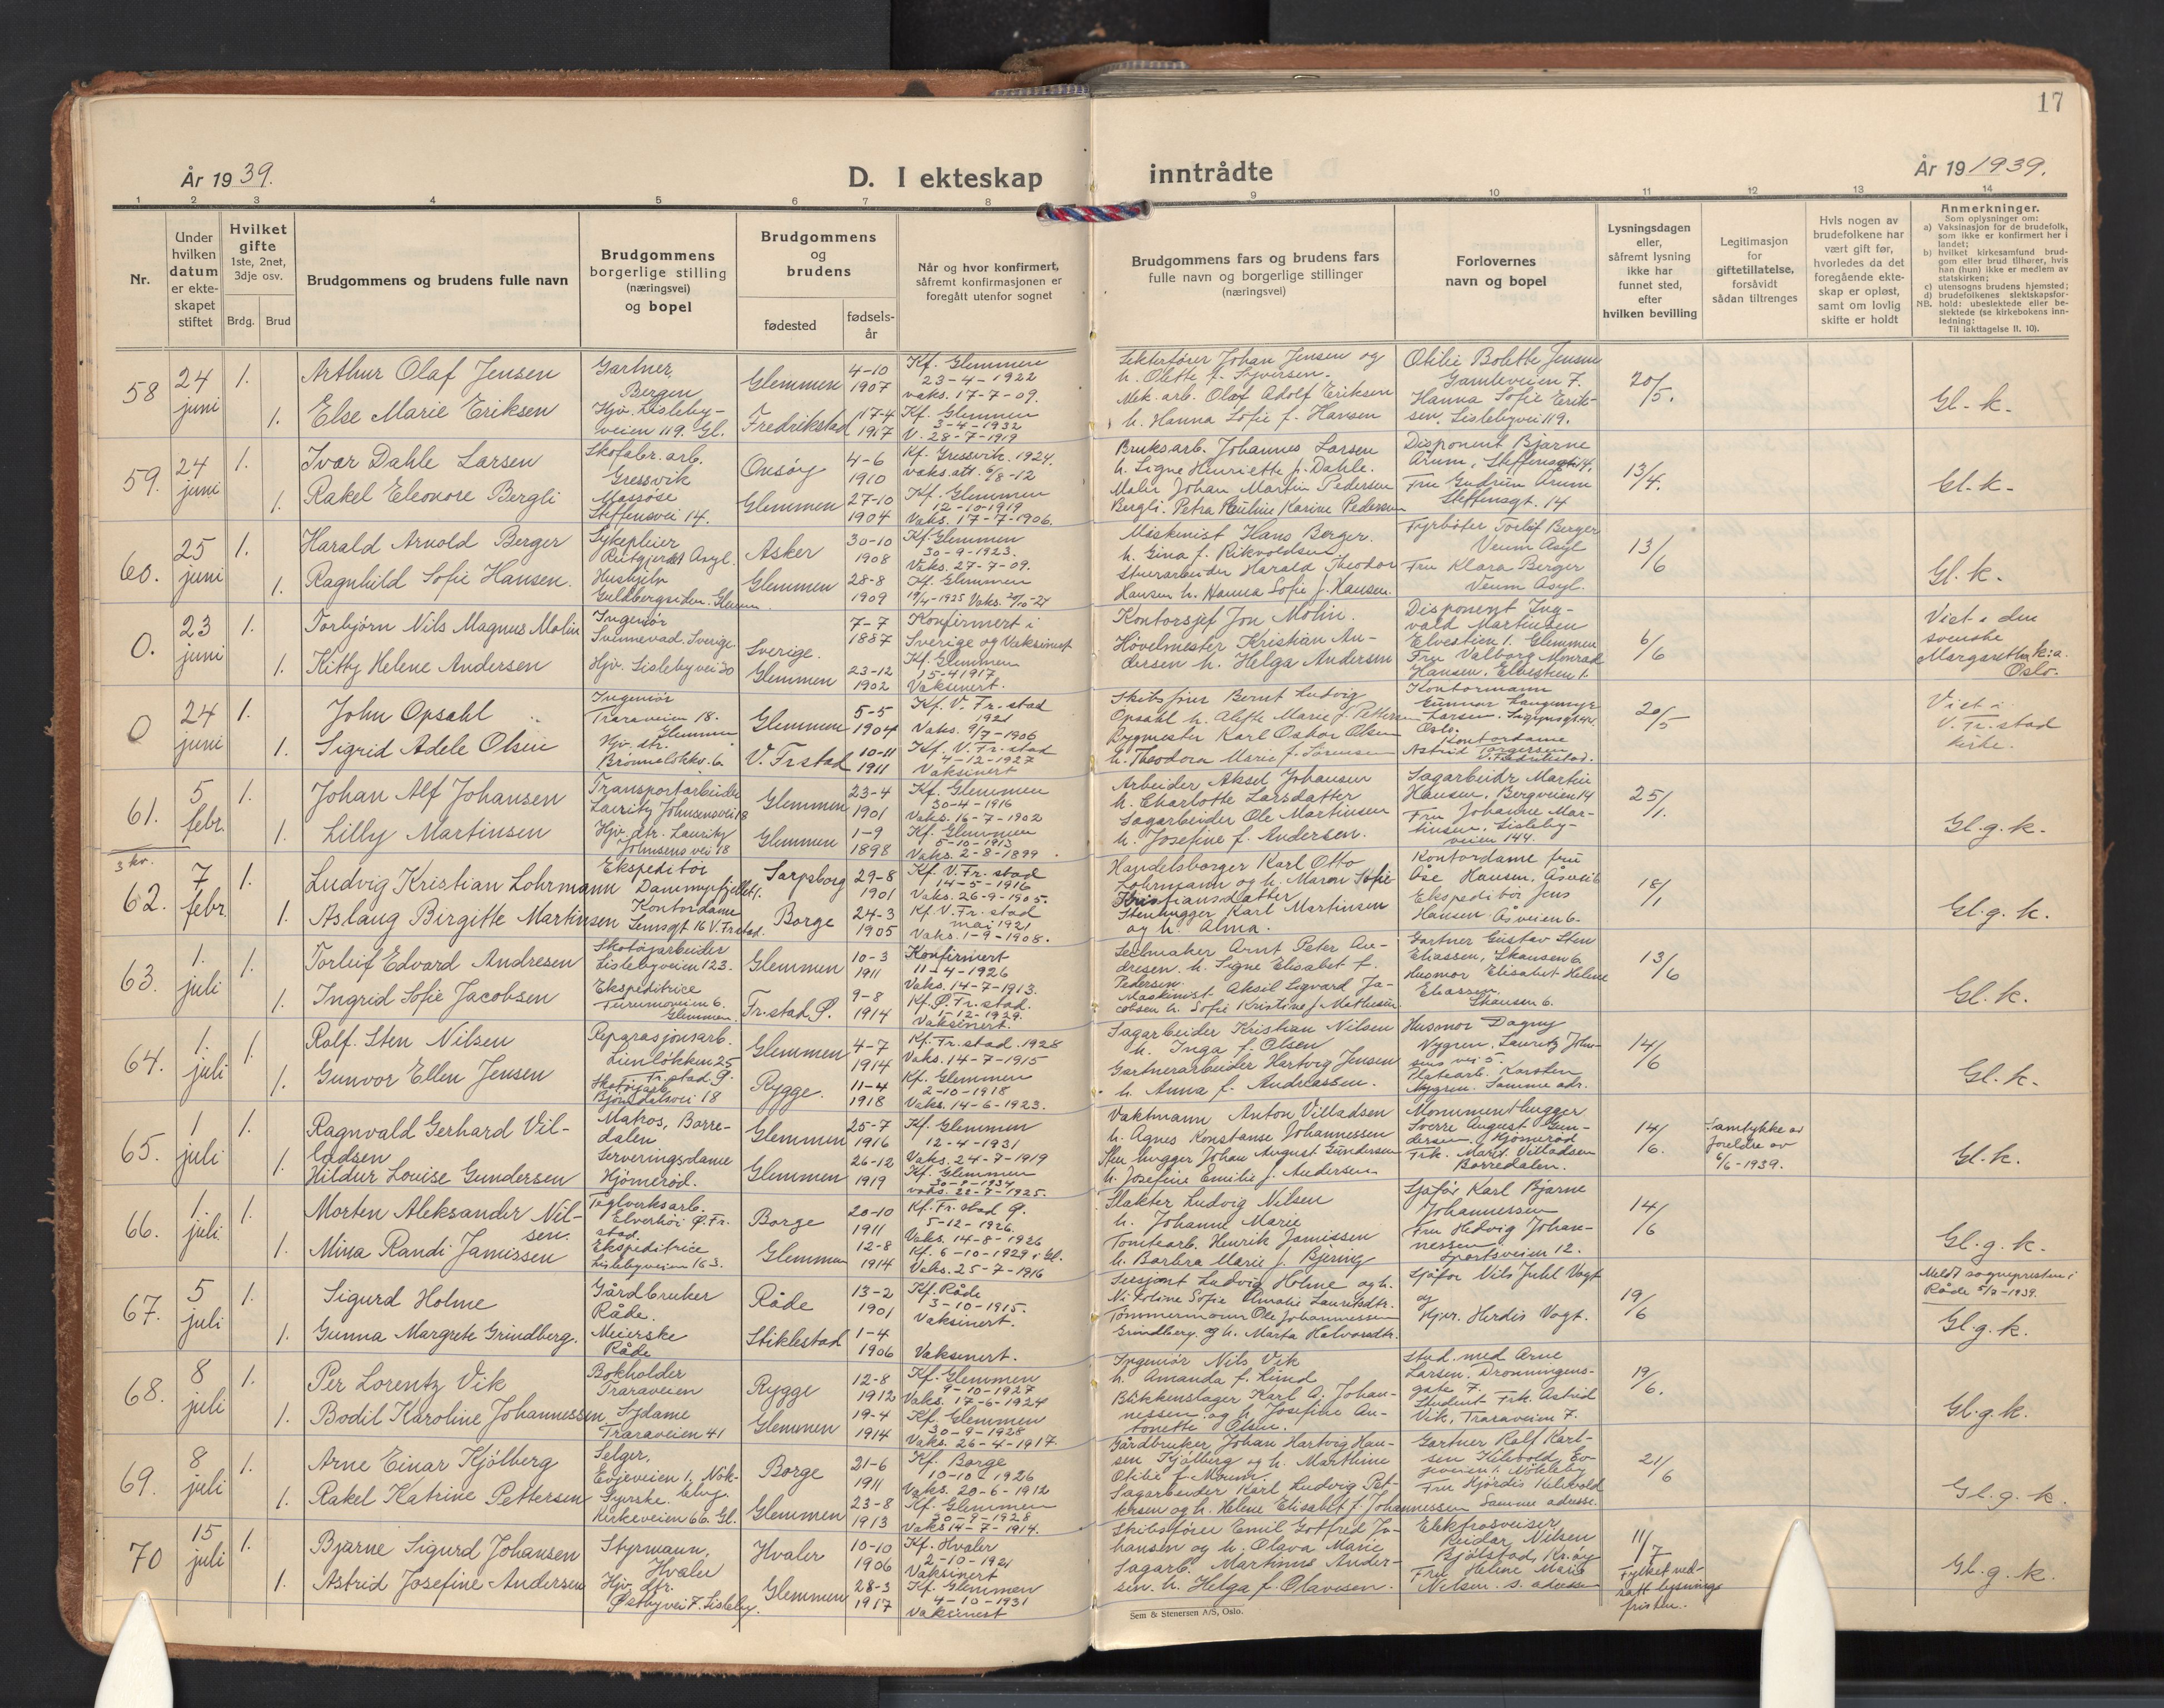 17
År 19 39.
D. I ekteskap inntrådte
År 19 1939.
1 2 3 4 5 6 7 8 9 10 11 12 13 14
Nr.
Under hvilken datum er ekteskapet stiftet
Hvilket gifte 1ste, 2net, 3dje osv.
Brdg. Brud
Brudgommens og brudens fulle navn
Brudgommens borgerlige stilling (næringsvei) og bopel
Brudgommens og brudens
fødested
fødselsår
Når og hvor konfirmert, såfremt konfirmasjonen er foregått utenfor sognet
Brudgommens fars og brudens fars fulle navn og borgerlige stillinger (næringsvei)
Forlovernes navn og bopel
Lysningsdagen eller, såfremt lysning ikke har funnet sted, efter hvilken bevilling
Legitimasjon for giftetillatelse, forsåvidt sådan tiltrenges
Hvis nogen av brudefolkene har vært gift før, hvorledes da det foregående ekteskap er opløst, samt om lovlig skifte er holdt
Anmerkninger.
Som oplysninger om:
a) Vaksinasjon for de brudefolk, som ikke er konfirmert her i landet;
b) hvilket kirkesamfund brudgom eller brud tilhører, hvis han (hun) ikke er medlem av statskirken;
c) utensogns brudens hjemsted;
d) brudefolkenes slektskapsforhold: ubeslektede eller beslektede (se kirkebokens innledning:
NB. Til iakttagelse II. 10).
58 24 juni 1. Arthur Olaf Jensen Gartner, Bergen Glemmen 4-10 1907 Kf. Glemmen 23-4-1922 vaks. 17-7-09.
Johan Jensen og h. Olette f. Syversen. Otilie Bolette Jensen Gamleveien 7. 20/5. Gl. k.
1. Else Marie Eriksen Hjv. Lislebyveien 119. Gl. Fredrikstad 17-4 1917 Kf. Glemmen 3-4-1932 V. 28-7-1919
Mek. arb. Olaf Adolf Eriksen h. Hanna Sofie f. Hansen Hanna Sofie Eriksen. Lislebyvei 119.
59. 24 juni 1. Ivar Dahle Larsen Skofabr. arb. Gressvik Onsøy 4-6 1910 Kf. Gressvik. 1924. vaks. att. 6/8-12
Bruksarb. Johannes Larsen h. Signe Henriette f. Dahle. Disponent Bjarne Arum, Steffensgt 14. 13/4. Gl. k.
1. Rakel Eleonore Bergli Massøse Steffensvei 14. Glemmen 27-10 1904 Kf. Glemmen 12-10-1919 Vaks. 17-7-1906.
Maler Johan Martin Pedersen Bergli. Petra Pauline Karine Pedersen Fru Gudrun Arum Steffensgt. 14
60. 25 juni 1. Harald Arnold Berger Sykepleier Asyl. Asker 30-10 1908 Kf. Glemmen 30-9-1923. Vaks. 27-7-09.
Maskinist Hans Berger. h. Gina f. Rikvoldsen Fyrbøter Torleif Berger Veum Asyl 13/6 Gl. k.
1. Ragnhild Sofie Hansen. Hushjelp Guldbergsiden. Glemmen. Glemmen 28-8 1909 Kf. Glemmen 19/4-1925 Vaks. 20/10-24
Stuerarbeider Harald Theodor Hansen h. Hanna Sofie f. Hansen. Fru Klara Berger Veum Asyl.
0. 23 juni 1. Torbjørn Nils Magnus Molin Ingeniør Svennevad. Sverige. Sverige. 7-7 1887 Konfirmert i Sverige og Vaksinert
Kontorsjef Jon Molin. Disponent Ingvald Martinsen Elvestien 1. Glemmen 6/6 Viet i den svenske Margaretha k: a. Oslo.
1. Kitty Helene Andersen Hjv. Lislebyvei 30 Glemmen 23-12 1902 Kf. Glemmen 15-4 1917 Vaksinert.
Høvelmester Kristian Andersen h. Helga Andersen Fru Valborg Monrad Hansen, Elvestien 1.
0 24 juni 1. John Opsahl Ingeniør Traraveien 18. Glemmen Glemmen 5-5 1904 Kf. V. Fr.stad 1921 Vaks. 9/7-1906
Skibsfører Bernt Ludvig Opsahl h. Alefte Marie f. Pettersen Kontormann Gunnar Langemyr Larsen. Oslo. 20/5 Viet i V. Fr.stad kirke.
1. Sigrid Adele Olsen Hjv. dtr. Brønnelökkv. 6 V. Frstad 10-11 1911 Kf. V. Fr.stad 4-12-1927 Vaksinert
Bygmester Karl Oskar Olsen h. Theodora Marie f. Sørensen Kontordame Astrid Torgersen V. Fredrikstad.
61. 5 febr. 1. Johan Alf Johansen Transportarbeider Lauritz Johnsensvei 18 Glemmen 23-4 1901 Kf. Glemmen 30-4-1916 Vaks. 16-7-1902
Arbeider Aksel Johansen h. Charlotte Larsdatter Sagarbeidr Martin Hansen, Bergveien 14 25/1. Gl. g. k.
1. Lilly Martinsen Hjv. dtr. Lauritz Johnsens vei 18 Glemmen 1-9 1898 Kf. Glemmen 5-10-1913 Vaks. 2-8-1899
Sagarbeider Ole Martinsen h. Josefine f. Andersen. Fru Johanne Martinsen. Lislebyveien 144.
3 kv.
62. 7 febr. 1. Ludvig Kristian Lohrmann Ekspeditør Dammyrfjellet 1. Sarpsborg 29-8 1901 Kf. V. Fr.stad 14-5-1916 Vaks. 26-9-1905.
Handelsborger Karl Otto Lohrmann og h. Maren Sofie Kristiansdatter Kontordame fru Åse Hansen, Åsvei 6 18/1 Gl. g. k.
1. Aslaug Birgitte Martinsen Kontordame Lumsgt 16 V. Frstad. Borge 24-3 1905 Kf. V. Fr.stad mai 1921 Vaks. 1-9-1908.
Stenhugger Karl Martinsen og h. Alma. Ekspeditør Jens Hansen. Åsveien 6.
63. 1. juli 1. Torleif Edvard Andresen Skotøjarbeider Lislebyveien 123. Glemmen 10-3 1911 Konfirmert 11-4-1926 Vaks. 14-7-1913.
Seilmaker Arnt Peter Andresen. h. Signe Elisabet f. Pedersen. Gartner Gustav Sten Eliassen, Skansen 6 13/6 Gl. k.
1. Ingrid Sofie Jacobsen Ekspeditrice Furumoveien 6. Glemmen. Fr.stad Ø. 9-8 1914 Kf. Ø. Fr.stad. 1-12-1929. Vaksinert.
Maskinist Aksil Sigvard Jacobsen h. Sofie Kristine f Mathesen Husmor Elisabet Helene Eliassen. Skansen 6.
64. 1. juli 1. Rolf. Sten Nilsen Reparasjonsarb. Lienløkken 25 Fr.stad Ø. Glemmen 4-7 1914 Kf. Fr.stad. 1928 Vaks. 14-7-1915
Sagarbeider Kristian Nilsen h. Inga f. Olsen Husmor Dagny Nygren. Lauritz Johnsens vei 5. 14/6 Gl. k.
1. Gunvor Ellen Jensen Skotøjarb. Bjørndalsvei 18 Rygge. 11-4 1918 Kf. Glemmen 2-10-1918 Vaks. 14-6-1923.
Gartnerarbeider Hartvig Jensen h. Anna f. Andreassen. Platearb. Karsten Nygren. Samme adr.
65. 1 juli 1. Ragnvald Gerhard Villadsen Matros, Borredalen Glemmen 25-7 1916 Kf. Glemmen 12-4-1931 Vaks. 24-7-1919
Vaktmann Anton Villadsen h. Agnes Konstanse Johannessen Monumenthugger Sverre August Gundersen, Hjømerød 14/6. Samtykke av foreldre av 6/6-1939. Gl. k.
1. Hildur Louise Gundersen Serveringsdame Hjømerød. Glemmen 26-12 1919 Kf. Glemmen 30-9-1934 vaks. 22-7-1925.
Stenhugger Johan August Gundersen h. Josefine Emilie f. Andersen Frk. Marit Villadsen Borredalen.
66. 1. juli 1. Morten Aleksander Nilsen. Teglverksarb. Elverhöi Ø. Fr.stad. Borge 20-10 1911 Kf. Fr.stad Ø. 5-12-1926. Vaks. 14-8-1926
Slakter Ludvig Nilsen h. Johanne Marie Sjåfør Karl Bjarne Johannessen 14/6 Gl. g. k.
1. Mina Randi Jamissen Ekspeditrice Lislebyveien 163. Glemmen 12-8 1914 Kf. 6-10-1929 i Gl. Vaks. 25-7-1916
Tomtearb. Henrik Jamissen h. Barbra Marie f. Bjering Fru Hedvig Johannessen Sportsveien 12.
67. 5 juli 1. Sigurd Holme Gårdbruker Råde. Råde 13-2 1901 Kf. Råde 3-10-1915. Vaksinert.
Sersjant Ludvig Holme og h. Nikoline Sofie Amalie Lauritsdtr. Sjåfør Nils Juhl Vogt og 19/6 Meldt sognepresten i Råde 5/7-1939. Gl. g. k.
1. Gunna Margrete Grindberg. Meierske Råde Stiklestad 1-4 1906 Vaksinert.
Tømmermann Ole Johannessen Grindberg og h. Marta Halvorsdtr. Hjur. Herdis Vogt.
68. 8 juli 1. Per Lorentz Vik Bokholder Traraveien Rygge 12-8 1912 Kf. Glemmen 9-10-1927 Vaks. 17-6-1924
Ingeniør Nils Vik h. Amanda f. Lund Stud. med Arne Larsen. Dronningensgate 7. 19/6. Gl. g. k.
1. Bodil Karoline Johannessen Sydame Traraveien 41 Glemmen 19-4 1914 Kf. Glemmen 30-9-1928 Vaks. 26-4-1917.
Blikkenslager Karl A. Johannessen og h. Josefine Antonette Olsen. Student Frk. Astrid Vik, Traraveien 7.
69. 8 juli 1. Arne Einar Kjølberg Selger. Evjeveien 1. Nökleby. Borge 21-6 1911 Kf. Borge 10-10-1926 Vaks. 20-6-1912
Gårdbruker Johan Hartvig Hansen Kjølberg og h. Marthine Otilie f. Moum. Gartner Rolf Karlsen Kilebold, Evjeveien 1. Nökleby 21/6 Gl. g. k.
1. Rakel Katrine Pettersen Syerske. Kirkeveien 66. Gl. Glemmen 23-8 1913 Kf. Glemmen 30-9-1928 Vaks 14-7-1914.
Sagarbeider Karl Ludvig Pettersen og h. Helene Elisabet f. Johannessen Fru Hjördis Kilebold Samme adresse.
70 15 juli 1. Bjarne Sigurd Johansen Styrmann, Hvaler Hvaler 10-10 1906 Kf. Hvaler 2-10-1921 Vaksinert
Skibsfører Emil Gotfred Johansen og h. Olava Marie Elektrosveiser Reidar Nilsen Bjølstad, Kr.øy 11/7 Fylket nedsatt lysningsfristen. Gl. g. k.
1. Astrid Josefine Andersen Hjv. dtr. Østbyvei 7. Lisleby. Glemmen 28-3 1917 Kf. Glemmen 4-10-1931 Vaksinert
Sagarb. Martinus Andersen. h. Helga f. Olavesen. Fru Helene Marie Nilsen. s. adresse
Sem & Stenersen A/S, Oslo.